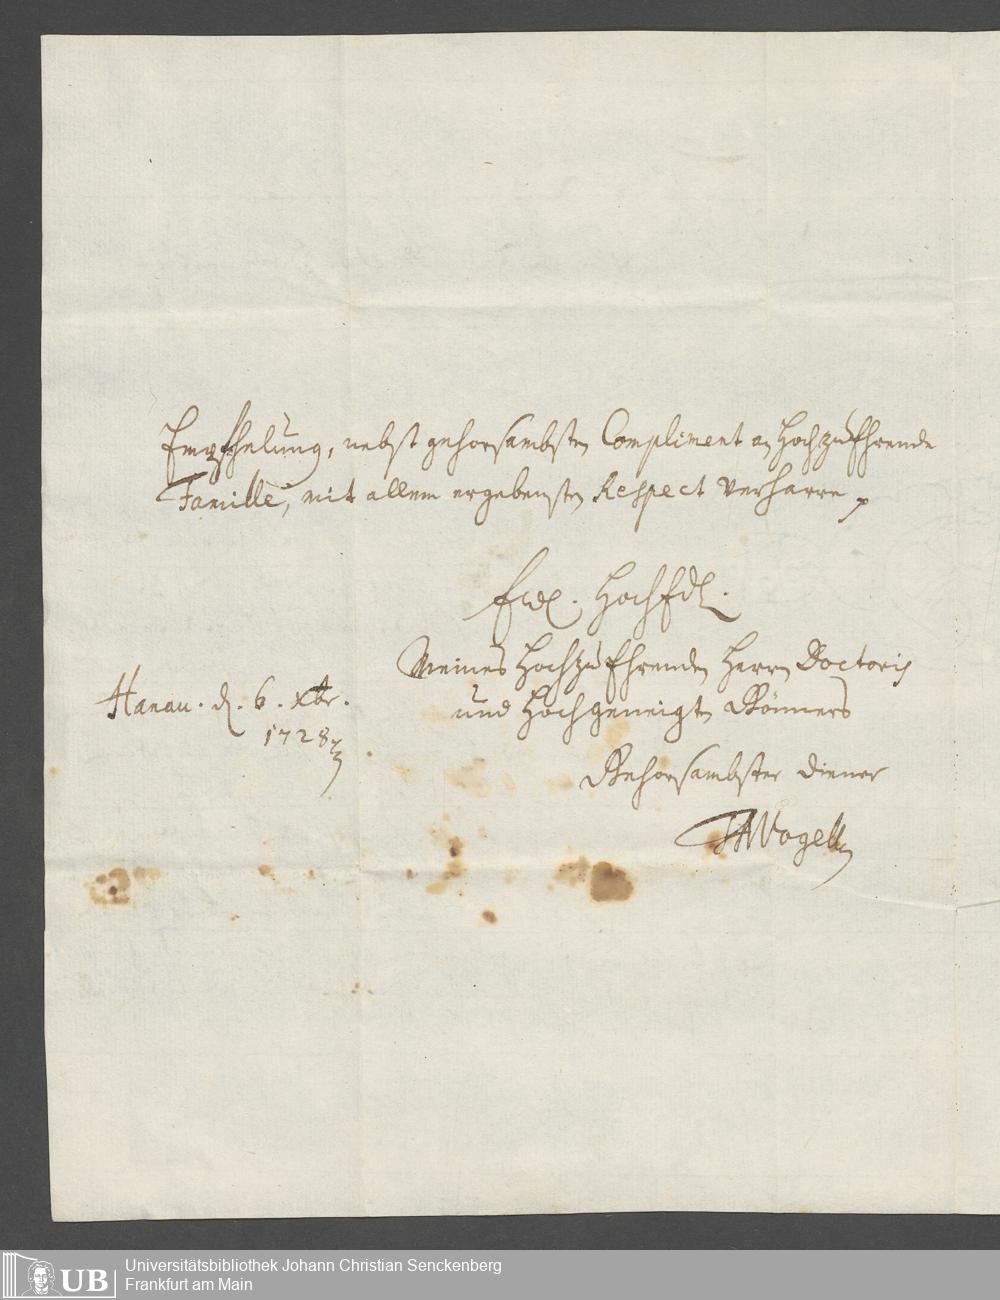 Empfhelung, nebst gehorsambsten Compliment an HochzuEhrende
Famille, mit allem ergebensten Respect verharre
Ewl. HochEdl.
Meines HochzuEhrenden Herrn Doctoris
und Hochgeneigten Gönners
Hanau. d. 6. Xbr.
1728
Gehorsambster diener
Vogell
UB
Universitätsbibliothek Johann Christian Senckenberg
Frankfurt am Main